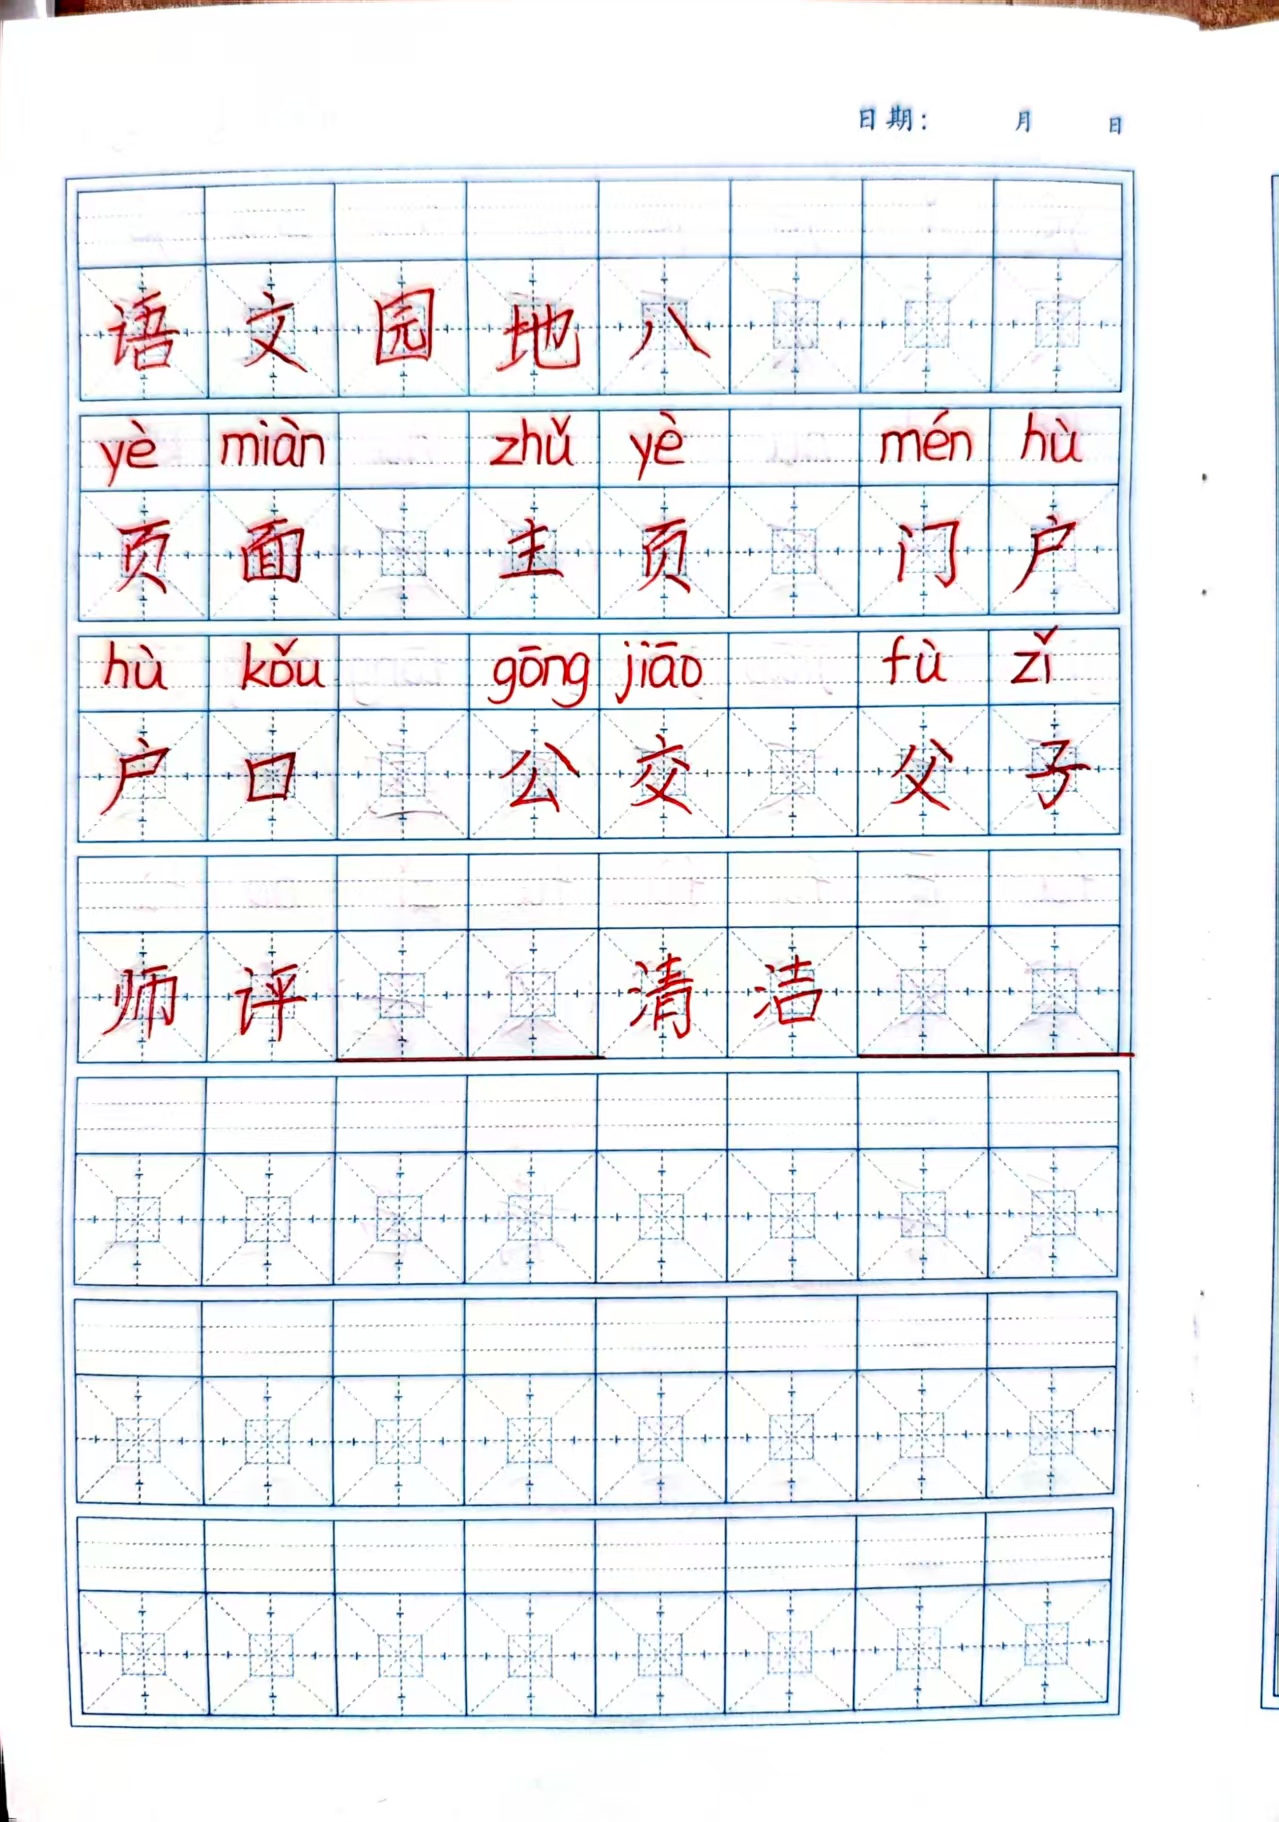 日期： 月 日
语文园地八
yè miàn zhǔ yè mén hù
页面 主页 门户
hù kǒu gōng jiāo fù zǐ
户口 公交 父子
师评 清洁